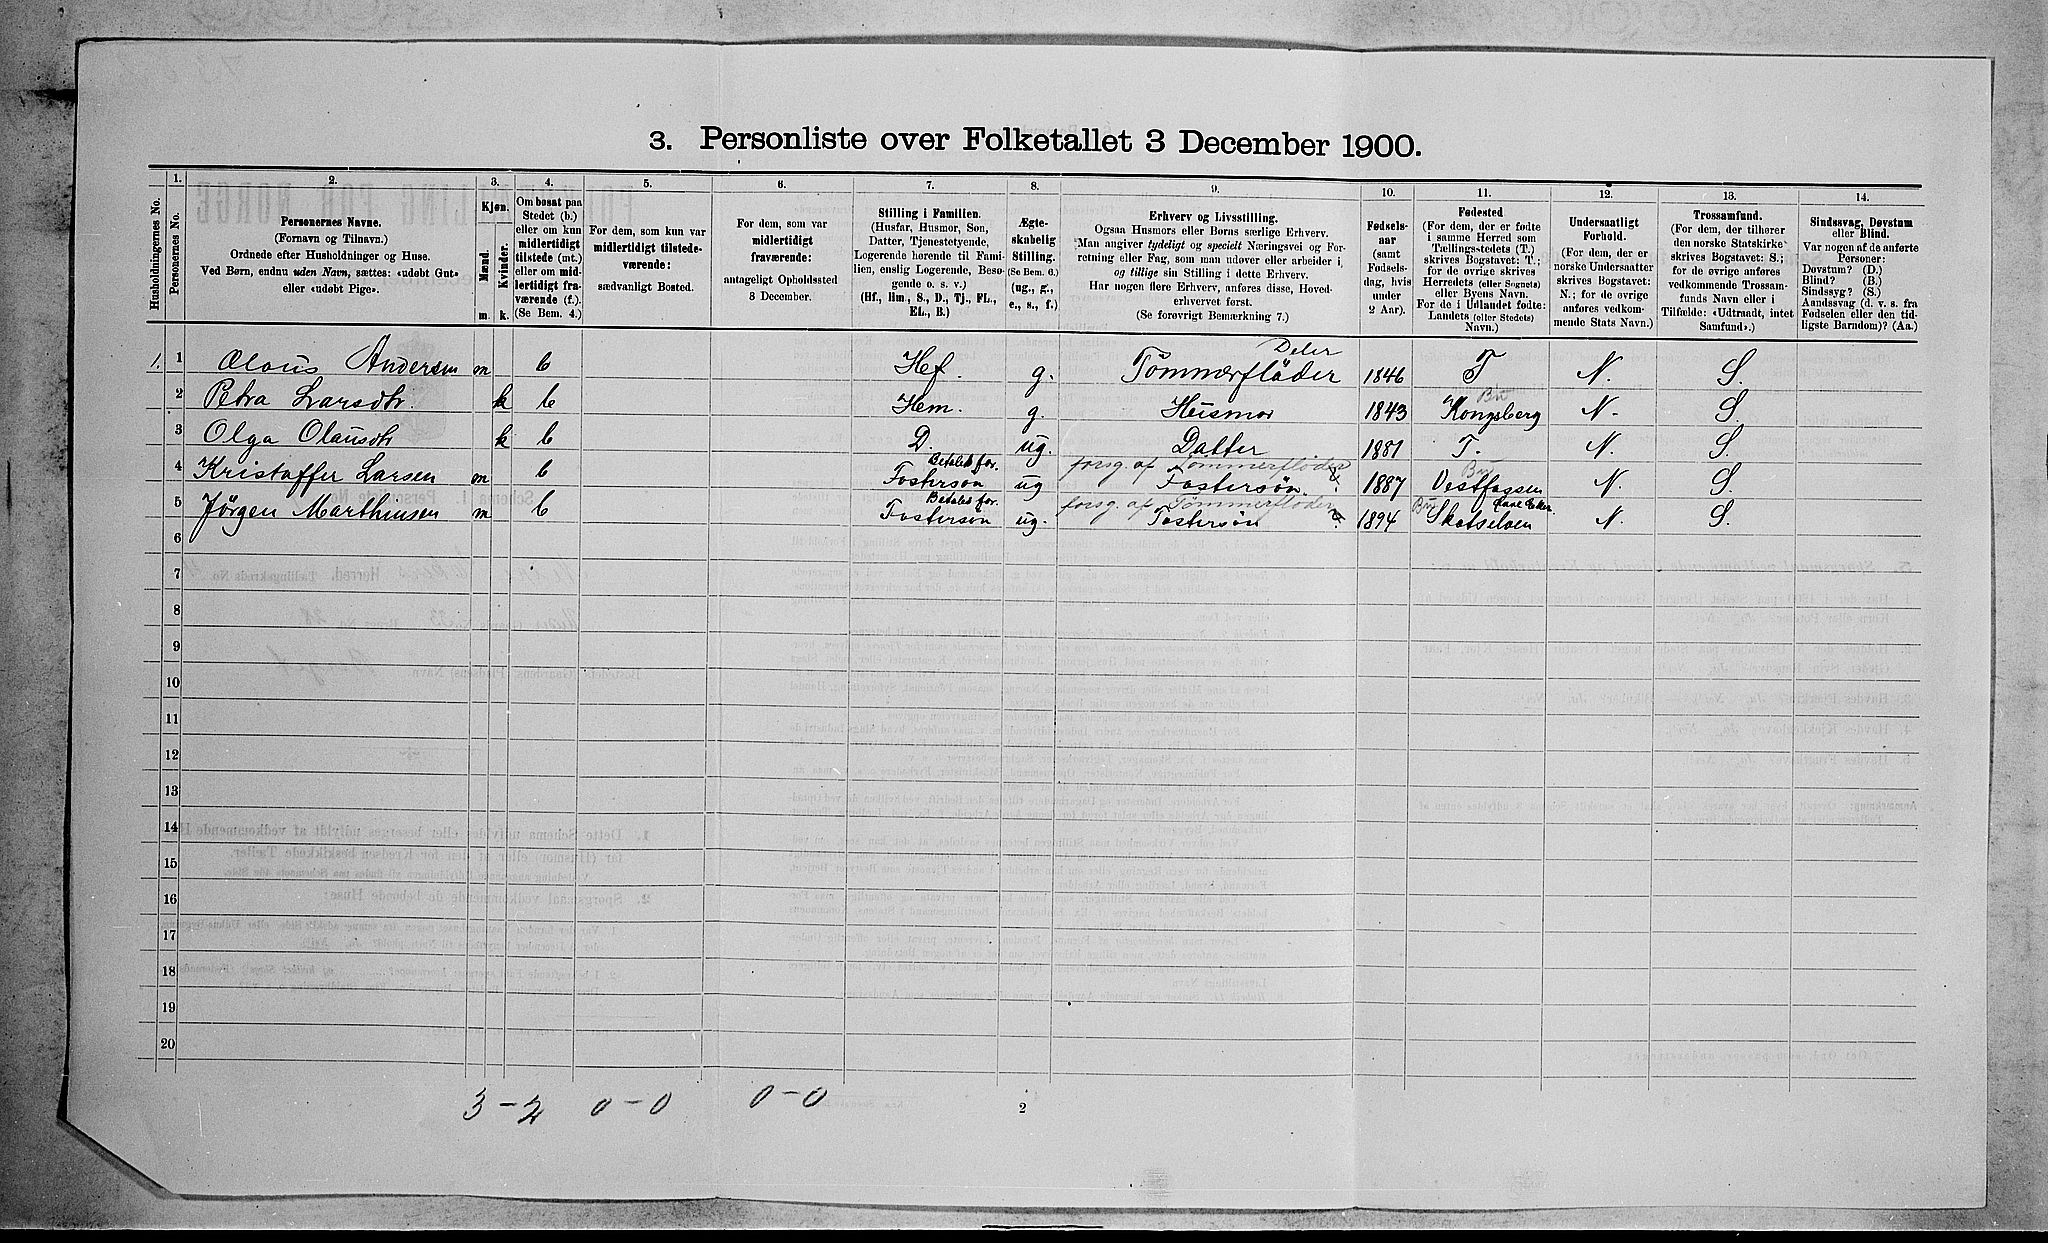 3. Personliste over Folketallet 3 December 1900.
1. 2. 3. 4. 5. 6. 7. 8. 9. 10. 11. 12. 13. 14.
Husholdningernes No.
Personernes No.
Personernes Navne.
(Fornavn og Tilnavn.)
Ordnede efter Husholdninger og Huse.
Ved Børn, endnu uden Navn, sættes: «udøbt Gut»
eller «udøbt Pige».
Kjøn.
Mænd.
Kvinder.
m. k.
Om bosat paa
Stedet (b.)
eller om kun
midlertidigt
tilstede (mt.)
eller om mid-
lertidigt fra-
værende (f.).
(Se Bem. 4.)
For dem, som kun var
midlertidigt tilstede-
værende:
sædvanligt Bosted.
For dem, som var
midlertidigt
fraværende:
antageligt Opholdssted
3 December.
Stilling i Familien.
(Husfar, Husmor, Søn,
Datter, Tjenestetyende,
Logerende hørende til Fami-
lien, enslig Logerende, Besø-
gende o. s. v.)
(Hf., Hm., S., D., Tj., FL.,
EL., B.)
Ægte-
skabelig
Stilling.
(Se Bem. 6.)
(ug., g.,
e., s., f.)
Erhverv og Livsstilling.
Ogsaa Husmors eller Børns særlige Erhverv.
Man angiver tydeligt og specielt Næringsvei og For-
retning eller Fag, som man udøver eller arbeider i,
og tillige sin Stilling i dette Erhverv.
Har nogen flere Erhverv, anføres disse, Hoved-
erhvervet først.
(Se forøvrigt Bemærkning 7.)
Fødsels-
aar
(samt
Fødsels-
dag, hvis
under
2 Aar).
Fødested
(For dem, der er fødte
i samme Herred som
Tællingsstedets (T.)
skrives Bogstavet: T.;
for de øvrige skrives
Herredets (eller Sognets)
eller Byens Navn.
For de i Udlandet fødte:
Landets (eller Stedets)
Navn.)
Undersaatligt
Forhold.
(For dem, der er
norske Undersaatter
skrives Bogstavet:
N.; for de øvrige
anføres vedkom-
mende Stats Navn.)
Trossamfund.
(For dem, der tilhører
den norske Statskirke
skrives Bogstavet: S.;
for de øvrige anføres
vedkommende Trossam-
funds Navn eller i
Tilfælde: «Udtraadt, intet
Samfund».)
Sindssvag, Døvstum
eller Blind.
Var nogen af de anførte
Personer:
Døvstum? (D.)
Blind? (B.)
Sindssyg? (S.)
Aandssvag (d. v. s. fra
Fødselen eller den tid-
ligste Barndom)? (Aa.)
Deler
1. 1 Olaus Andersen m b Hef. g. Tømmerfløder 1846 T N. S.
Bu
2 Petra Larsdtr. k b Hem. g. Husmor 1843 Kongsberg N. S.
3 Olga Olausdtr k b D. ug. Datter 1881 T. N. S.
Betales for. forsg. af Tømmerfløder Bu
4 Kristoffer Larsen m b Fosterson ug Fostersøn. 1887 Vestfossen N. S.
Betales for. forsg. af Tømmerfløder Bu
5 Jørgen Marthinsen m b Fosterson ug. Fostersøn 1894 Skotselven N. S.
6
7
8
9
10
11
12
13
14
15
16
17
18
19
20
3 - 2 0 - 0 0 - 0
2